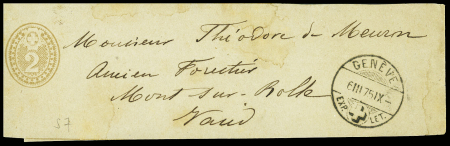 2
Monsieur Théodore de Meuron
Ancien Forestier
Mont sur Rolle
Vaud
GENÈVE
6 III 75 IX
EXP. LET.
57